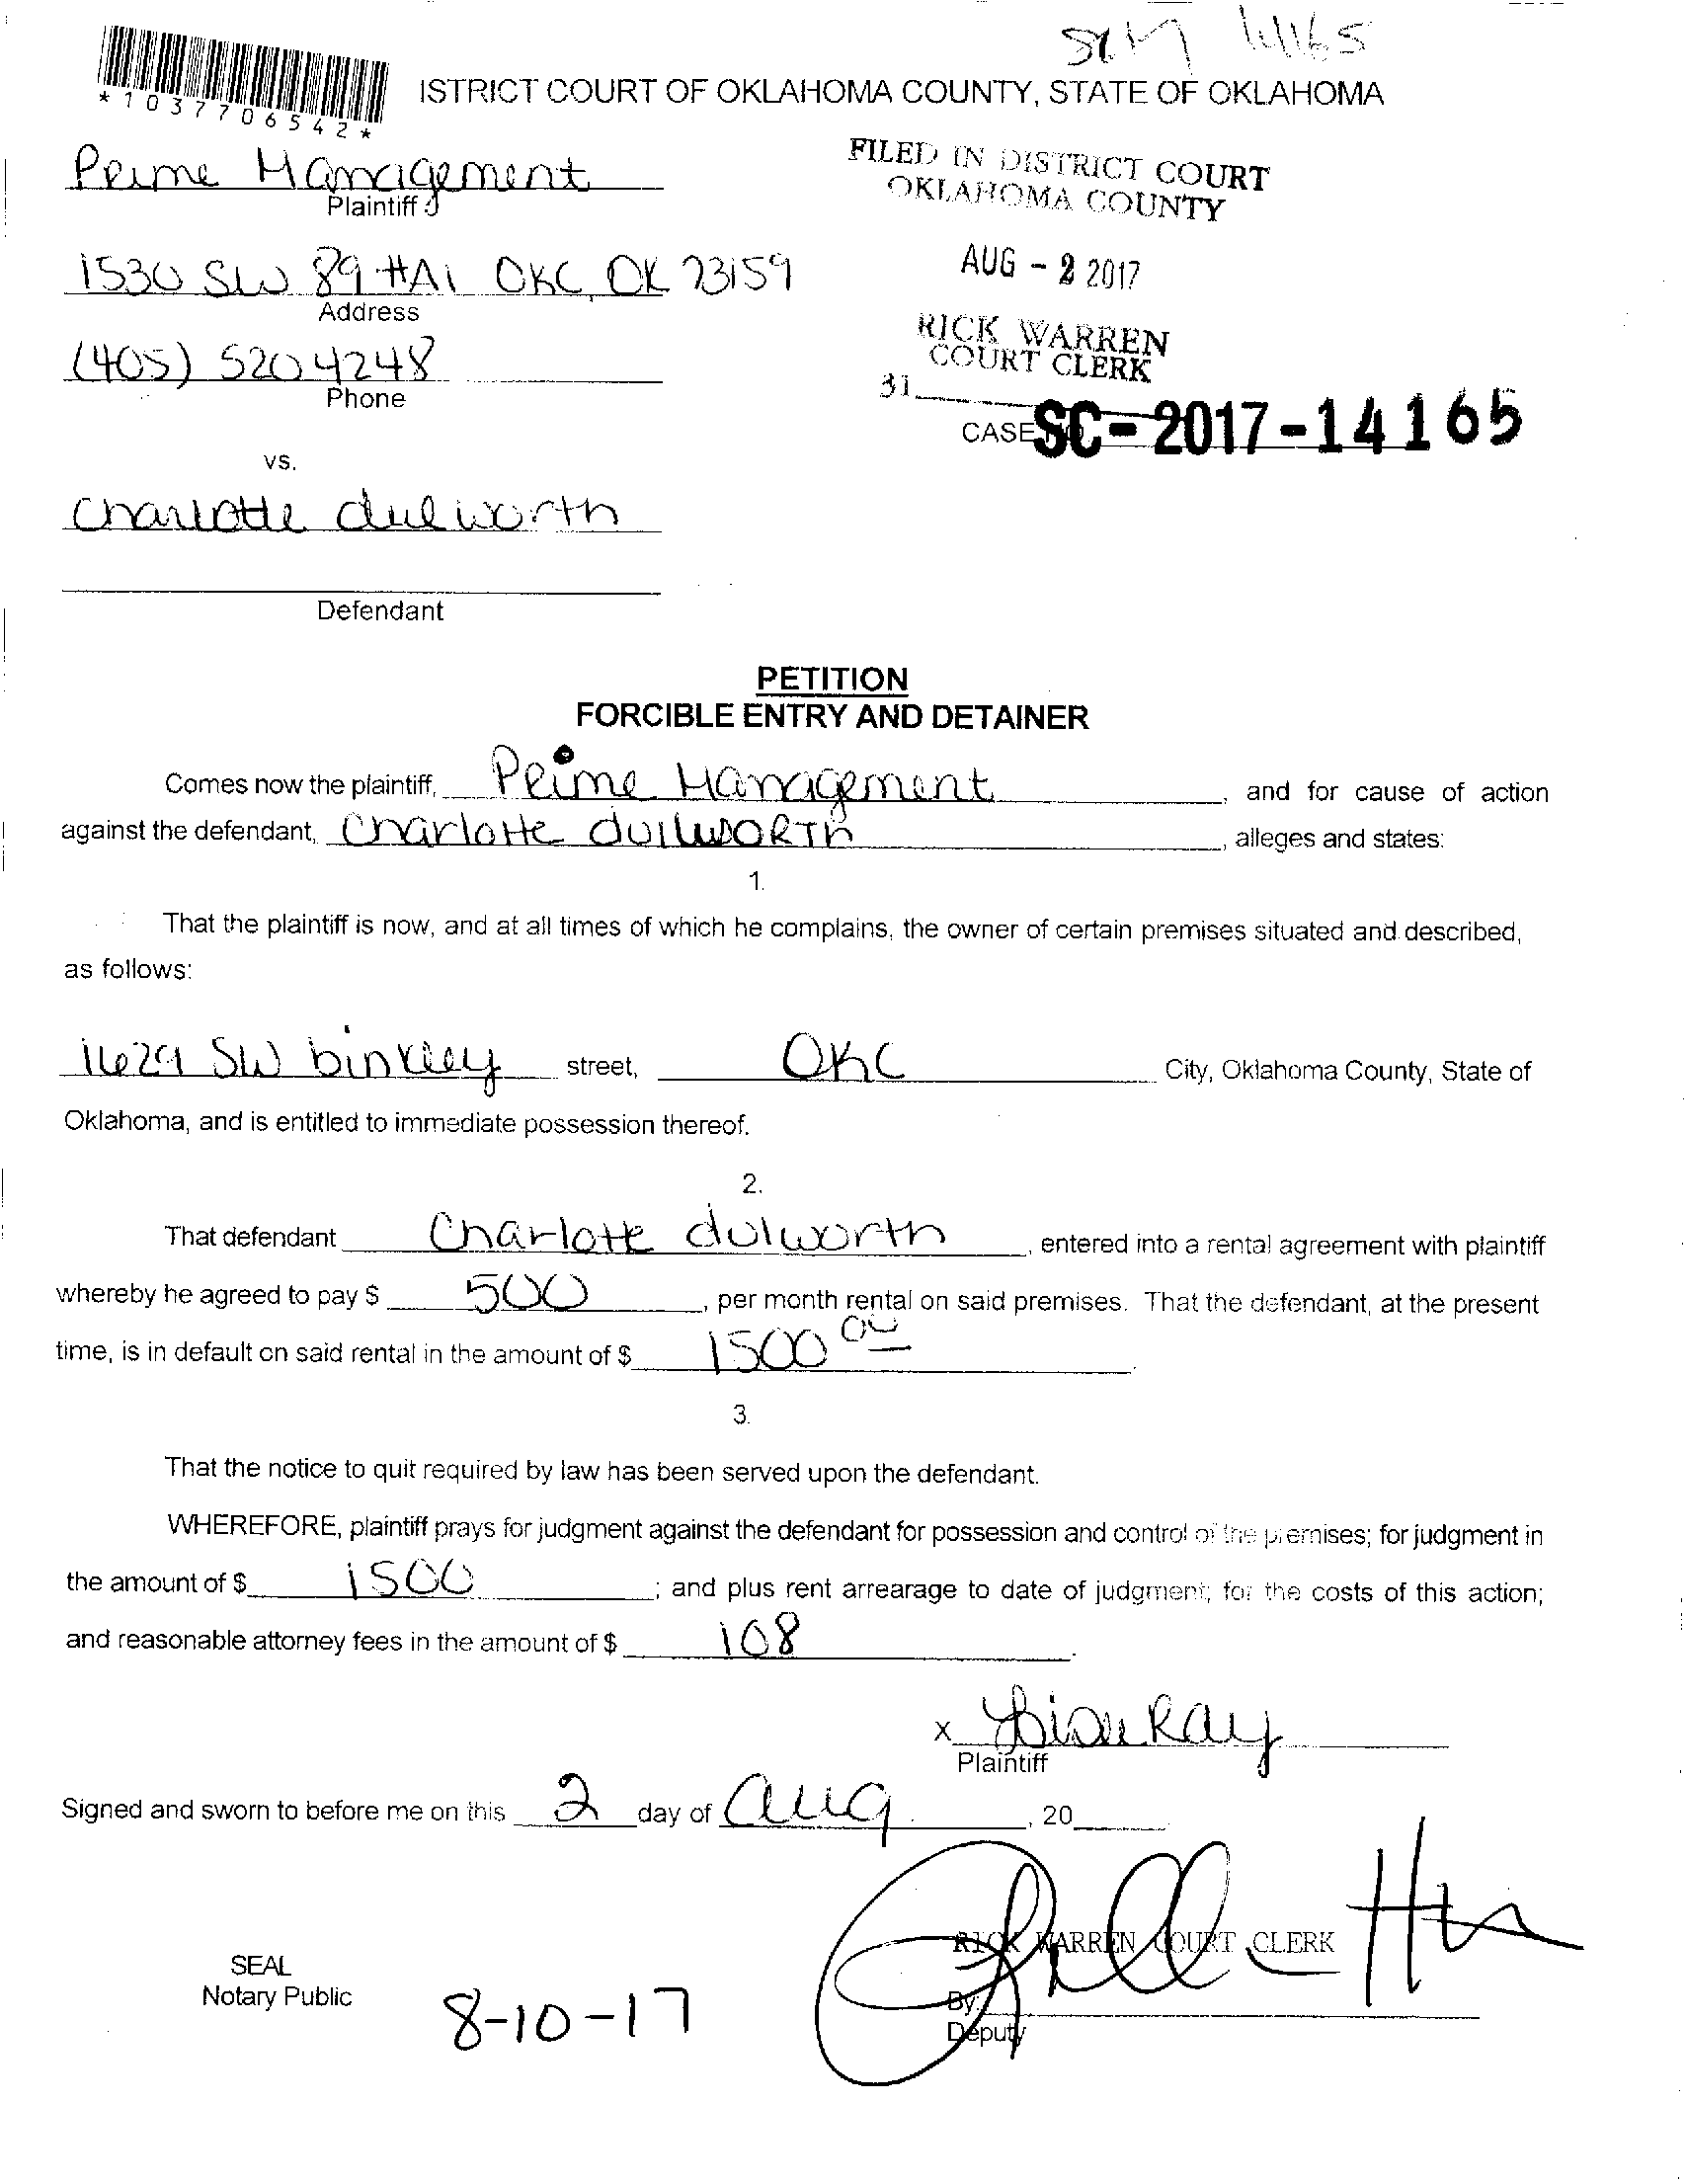 14165
*1037706542*
ISTRICT COURT OF OKLAHOMA COUNTY, STATE OF OKLAHOMA
Prime Management
Plaintiff
FILED IN DISTRICT COURT
OKLAHOMA COUNTY
1530 SW 89 #A1 OKC, OK 73159
Address
AUG - 2 2017
(405) 520 4248
Phone
RICK WARREN
COURT CLERK
31
CASE SC-2017-14165
vs.
Charlotte dulworth
Defendant
PETITION
FORCIBLE ENTRY AND DETAINER
Comes now the plaintiff, Prime Management, and for cause of action
against the defendant, Charlotte dullwORTh, alleges and states:
1.
That the plaintiff is now, and at all times of which he complains, the owner of certain premises situated and described,
as follows:
1629 SW binkley street, OKC City, Oklahoma County, State of
Oklahoma, and is entitled to immediate possession thereof.
2.
That defendant Charlotte dulworth, entered into a rental agreement with plaintiff
whereby he agreed to pay $ 500, per month rental on said premises. That the defendant, at the present
time, is in default on said rental in the amount of $ 1500 00.
3.
That the notice to quit required by law has been served upon the defendant.
WHEREFORE, plaintiff prays for judgment against the defendant for possession and control of the premises; for judgment in
the amount of $ 1500; and plus rent arrearage to date of judgment; for the costs of this action;
and reasonable attorney fees in the amount of $ 108.
x Ray
Plaintiff
Signed and sworn to before me on this 2 day of aug, 20
RICK WARREN COURT CLERK
SEAL
Notary Public
8-10-17
By:
Deputy